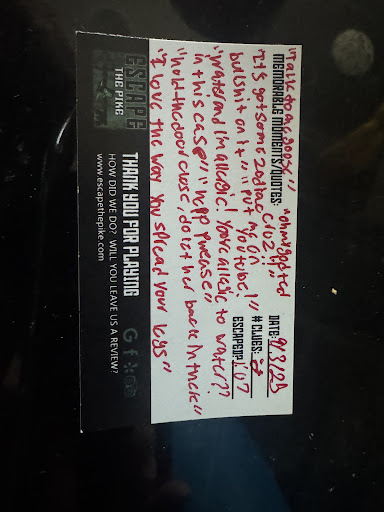 "Talk to a goose"
MEMORABLE MOMENTS/QUOTES:
DATE: 9/3/23
"It's got some zodiac
# CLUES:
bullshit on it" "I put my
Youtube!"
ESCAPED? 1:07
"water and I'm allergic! You're allergic to water??
in this case"
"hold the door close, do let her back in there"
"I love the way you spread your legs"
ESCAPE
THE PIKE
THANK YOU FOR PLAYING
HOW DID WE DO? WILL YOU LEAVE US A REVIEW?
www.escapethepike.com